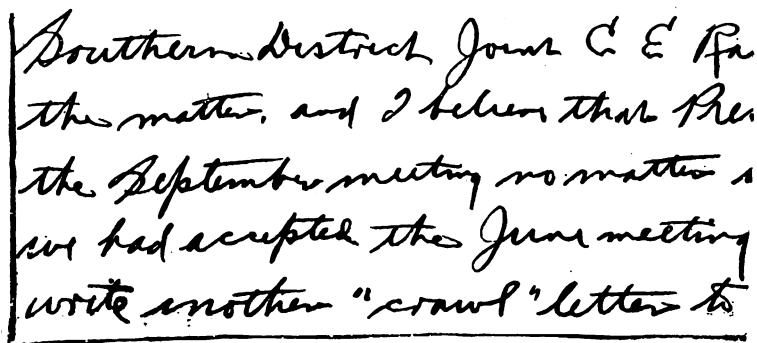 Southern District Joint C E Ra
the matter. and I believe that Pres
the September meeting no matter
we had accepted the June meeting
write another "crawl" letter to